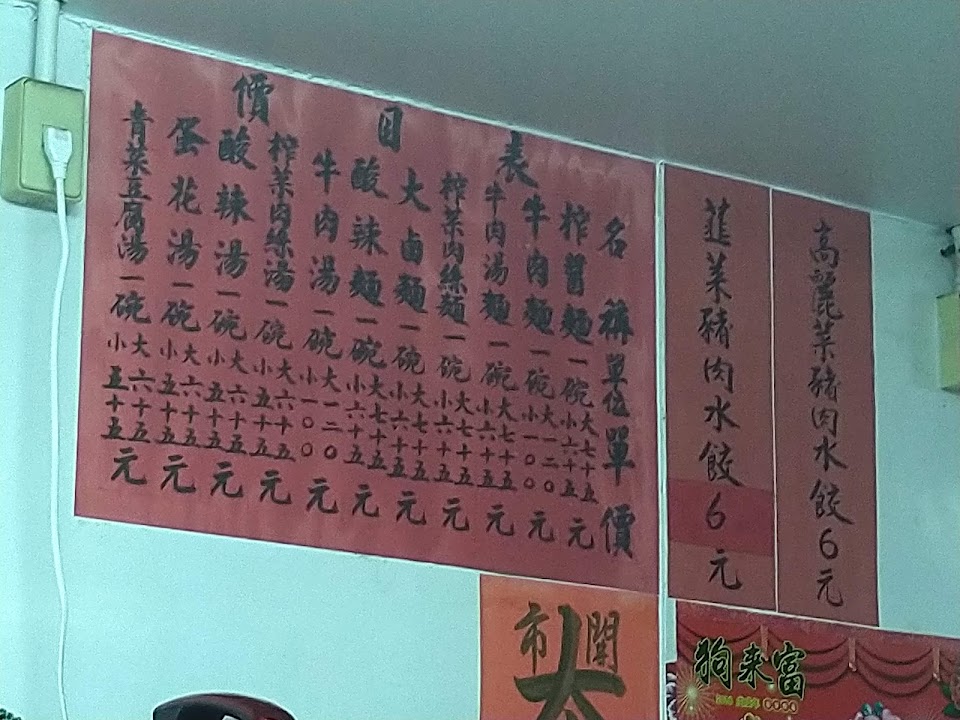 價目表
名稱 單位 單價
榨醬麵一碗大七十五小六十五元
牛肉麵一碗大一二〇小一〇〇元
牛肉湯麵一碗大七十五小六十五元
榨菜肉絲麵一碗大七十五小六十五元
大鹵麵一碗大七十五小六十五元
酸辣麵一碗大七十五小六十五元
牛肉湯一碗大一二〇小一〇〇元
榨菜肉絲湯一碗大六十五小五十五元
酸辣湯一碗大六十五小五十五元
蛋花湯一碗大六十五小五十五元
青菜豆腐湯一碗大六十五小五十五元
高麗菜豬肉水餃6元
韮菜豬肉水餃6元
開市
大
狗来富